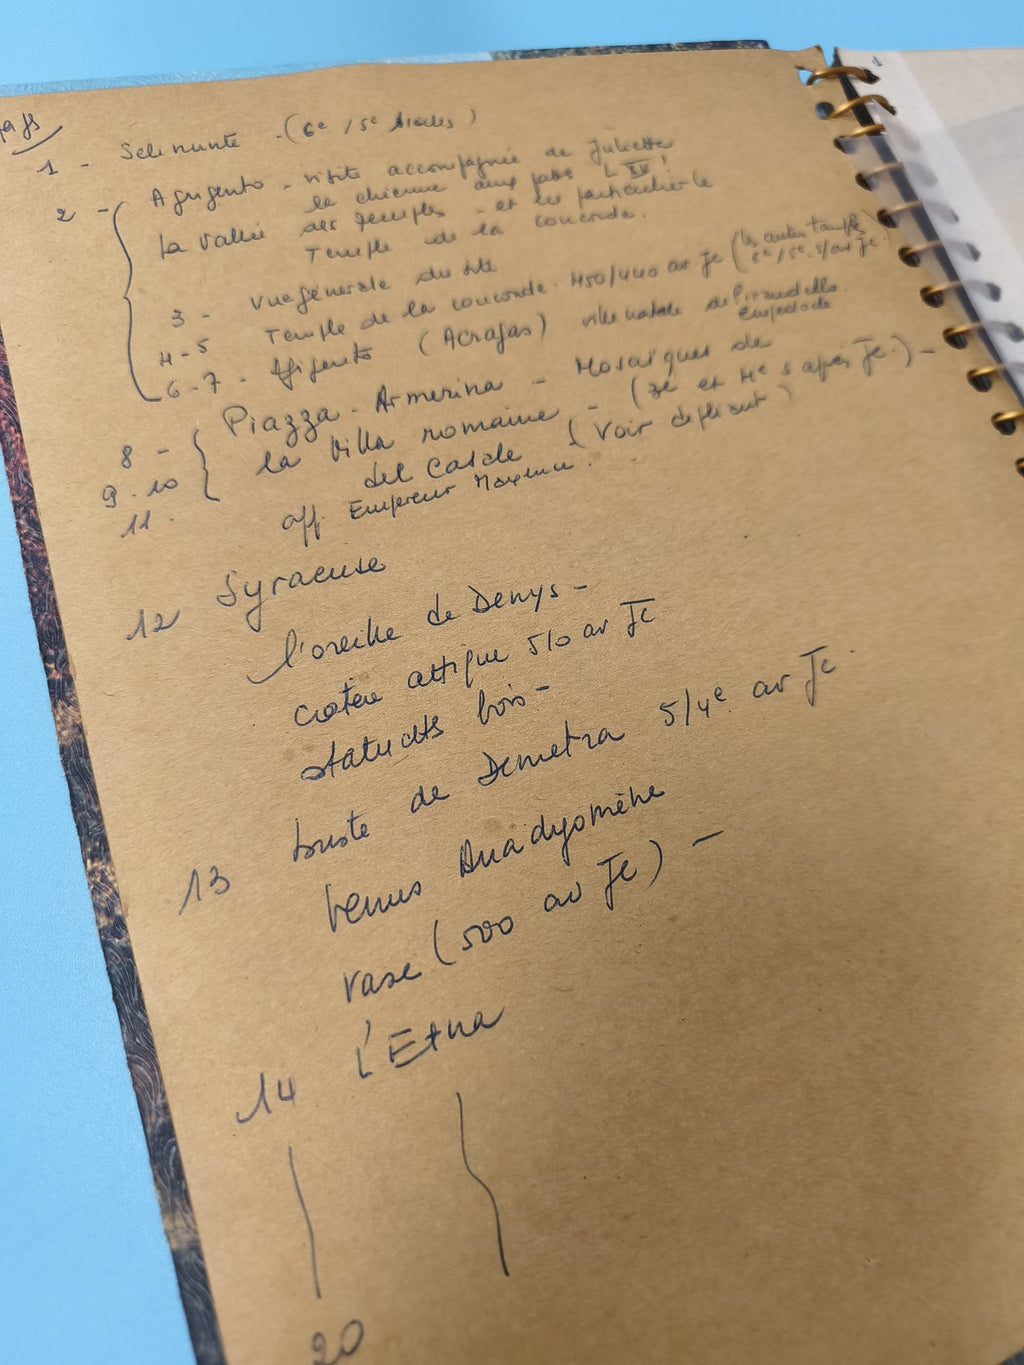 1 - Selinunte - (6e / 5e siècles)
2 - Agrigento - visite accompagnée de Juliette
la chienne aux pattes L XV !
La vallée des temples - et en particulier le
Temple de la concorde.
3 - Vue générale du site
4 - 5 Temple de la concorde. 450/440 av JC (les autres temples
5e/5e. s/av JC.)
6 - 7 - Agrigento (Acragas) ville natale de Pirandello
Empedocle
8 - Piazza - Armerina - Mosaïques de
9 - 10 la villa romaine - (3e et 4e s après JC.) -
11. del Casale (voir dépliant)
aff. Empereur Maxence.
12 Syracuse
l'oreille de Denys -
cratère attique 510 av JC
statuettes bois -
buste de Demetra 5/4e av JC.
13 Venus Anadyomène
vase (500 av JC) -
14 L'Etna
20
1